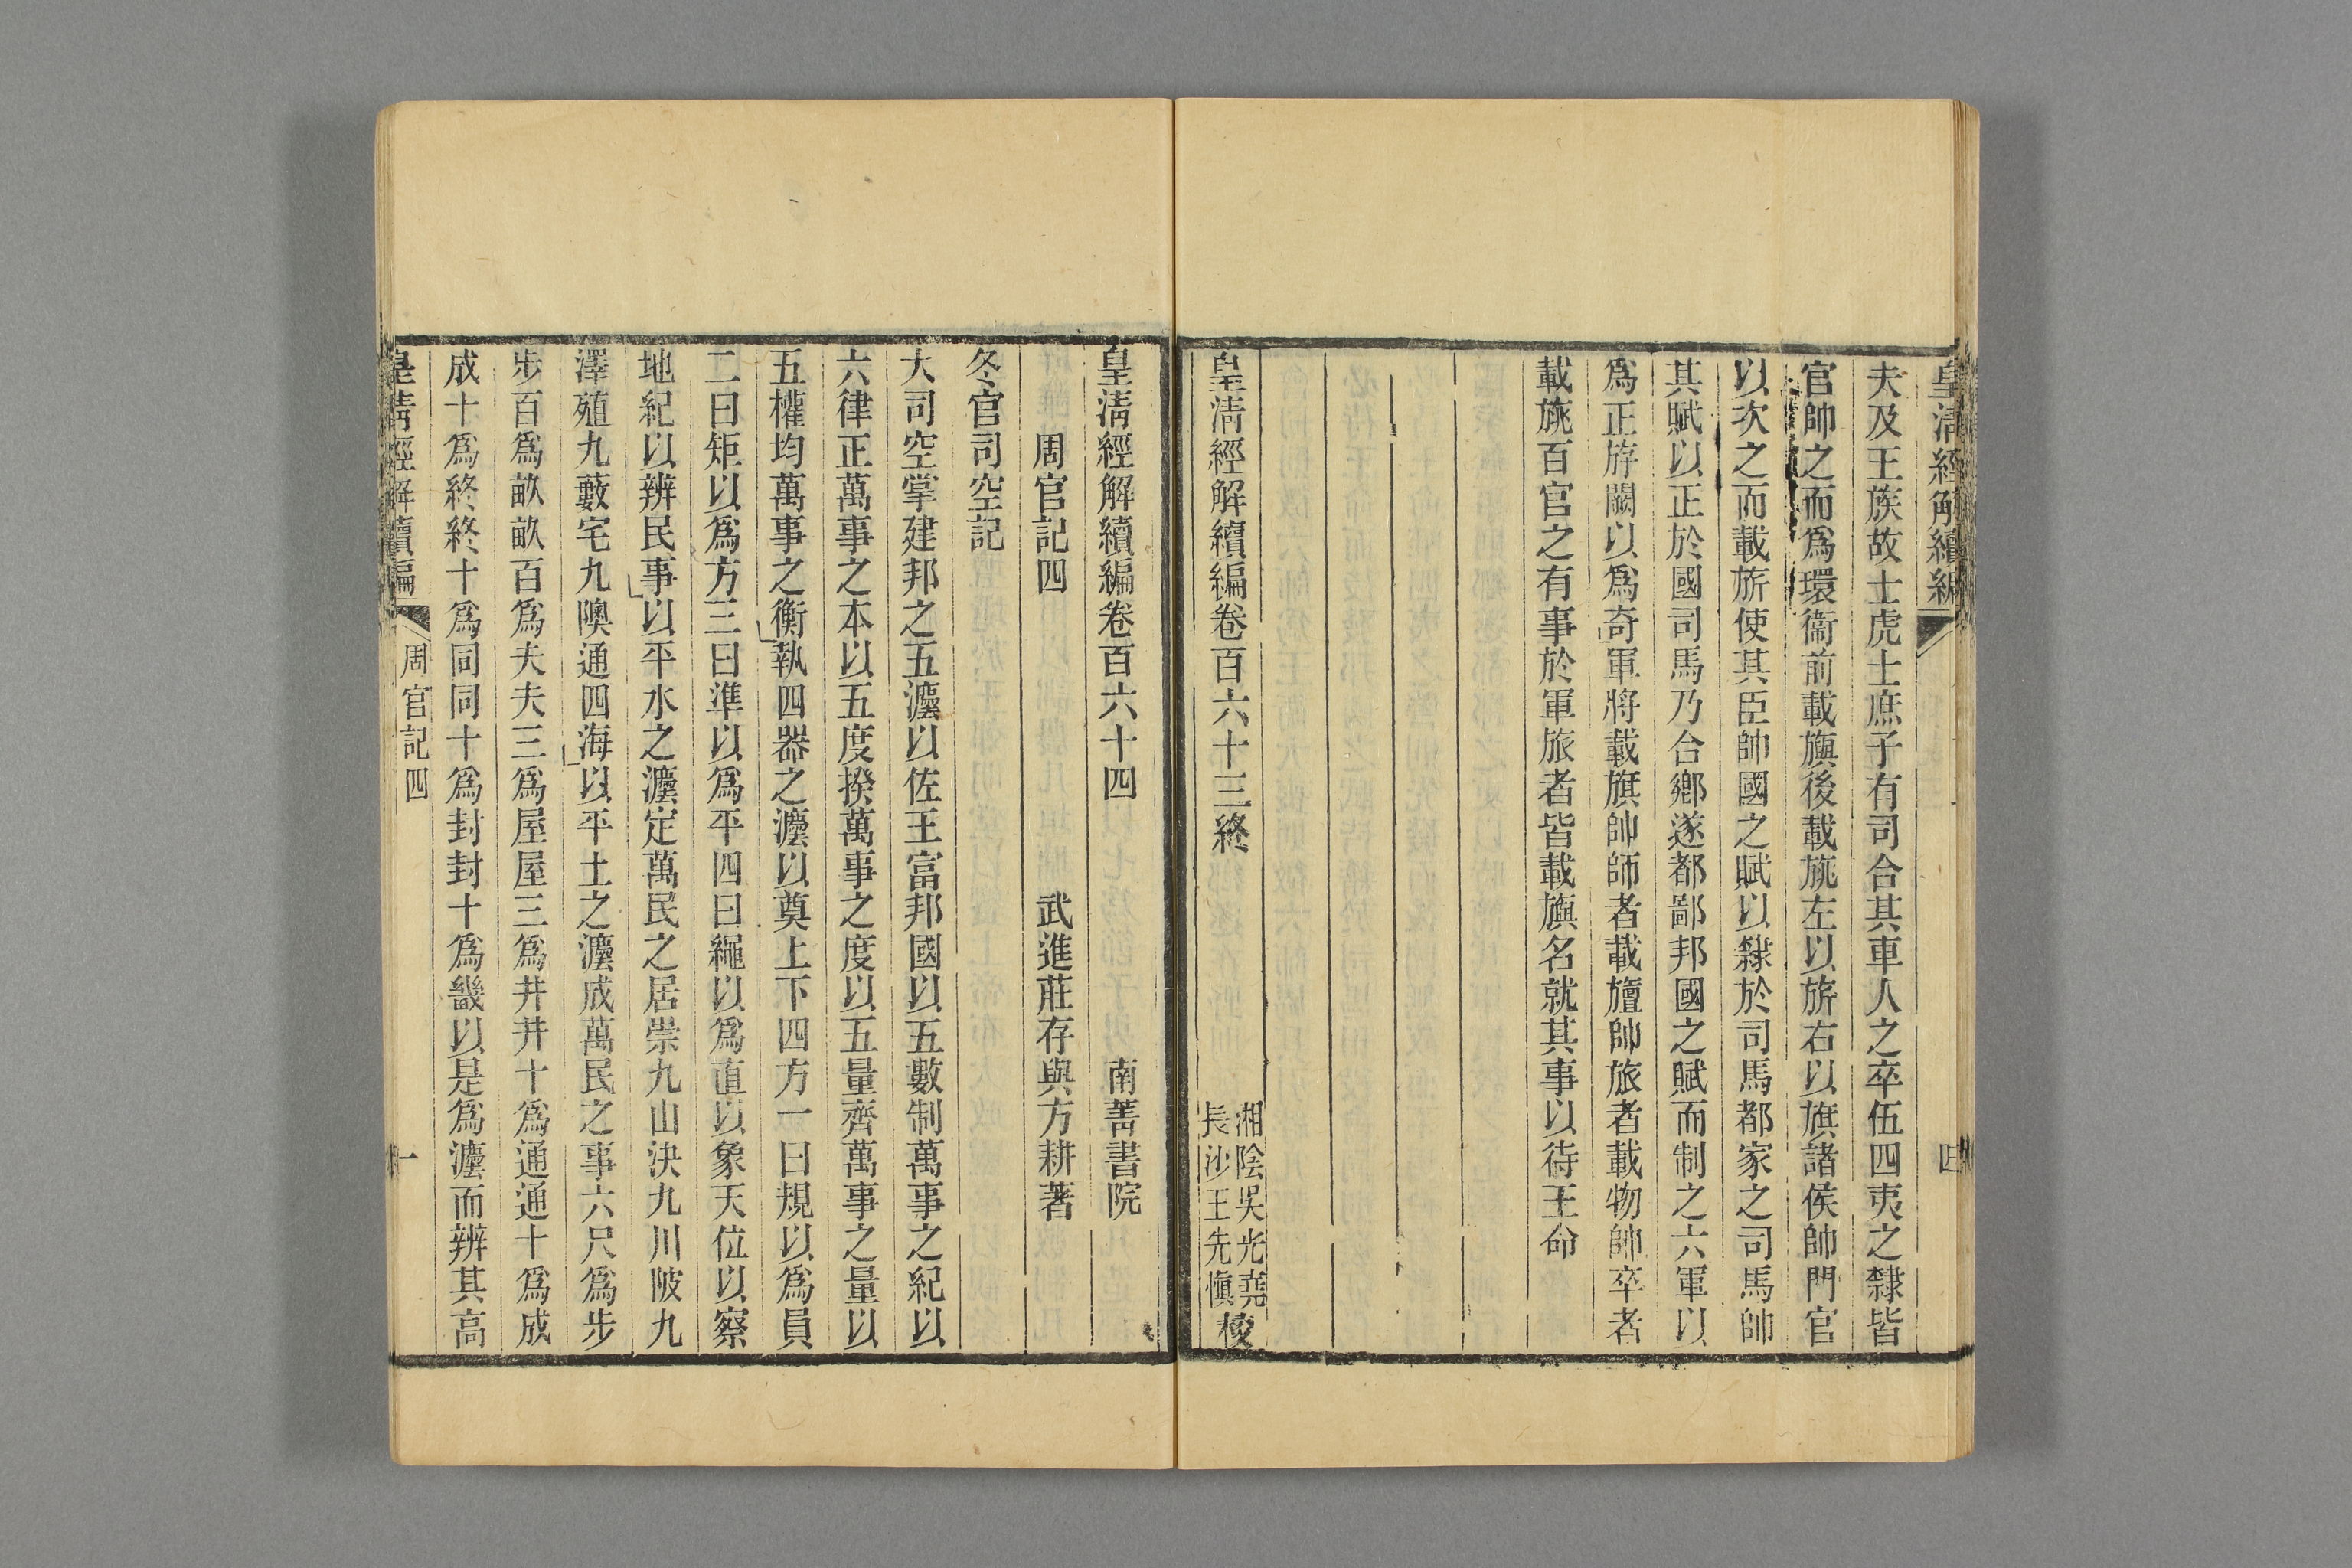 皇淸經解續編
夫及王族故士虎士庶子有司合其車人之卒伍四夷之隸皆
官帥之而爲環衞前載旟後載旐左以旂右以旗諸侯帥門官
以次之而載旂使其臣帥國之賦以隸於司馬都家之司馬帥
其賦以正於國司馬乃合鄕遂都鄙邦國之賦而制之六軍以
爲正斿闕以爲奇軍將載旗帥師者載旜帥旅者載物帥卒者
載旐百官之有事於軍旅者皆載旟名就其事以待王命
皇淸經解續編卷百六十三終
湘陰吳光堯
長沙王先愼
校
皇淸經解續編卷百六十四
南菁書院
周官記四
武進莊存與方耕著
冬官司空記
大司空掌建邦之五灋以佐王富邦國以五數制萬事之紀以
六律正萬事之本以五度揆萬事之度以五量齊萬事之量以
五權均萬事之衡執四器之灋以奠上下四方一曰規以爲員
二曰矩以爲方三曰準以爲平四曰繩以爲直以象天位以察
地紀以辨民事以平水之灋定萬民之居崇九山決九川陂九
澤殖九藪宅九隩通四海以平土之灋成萬民之事六尺爲步
步百爲畝畝百爲夫夫三爲屋屋三爲井井十爲通通十爲成
成十爲終終十爲同同十爲封封十爲畿以是爲灋而辨其高
皇淸經解續編
周官記四
一